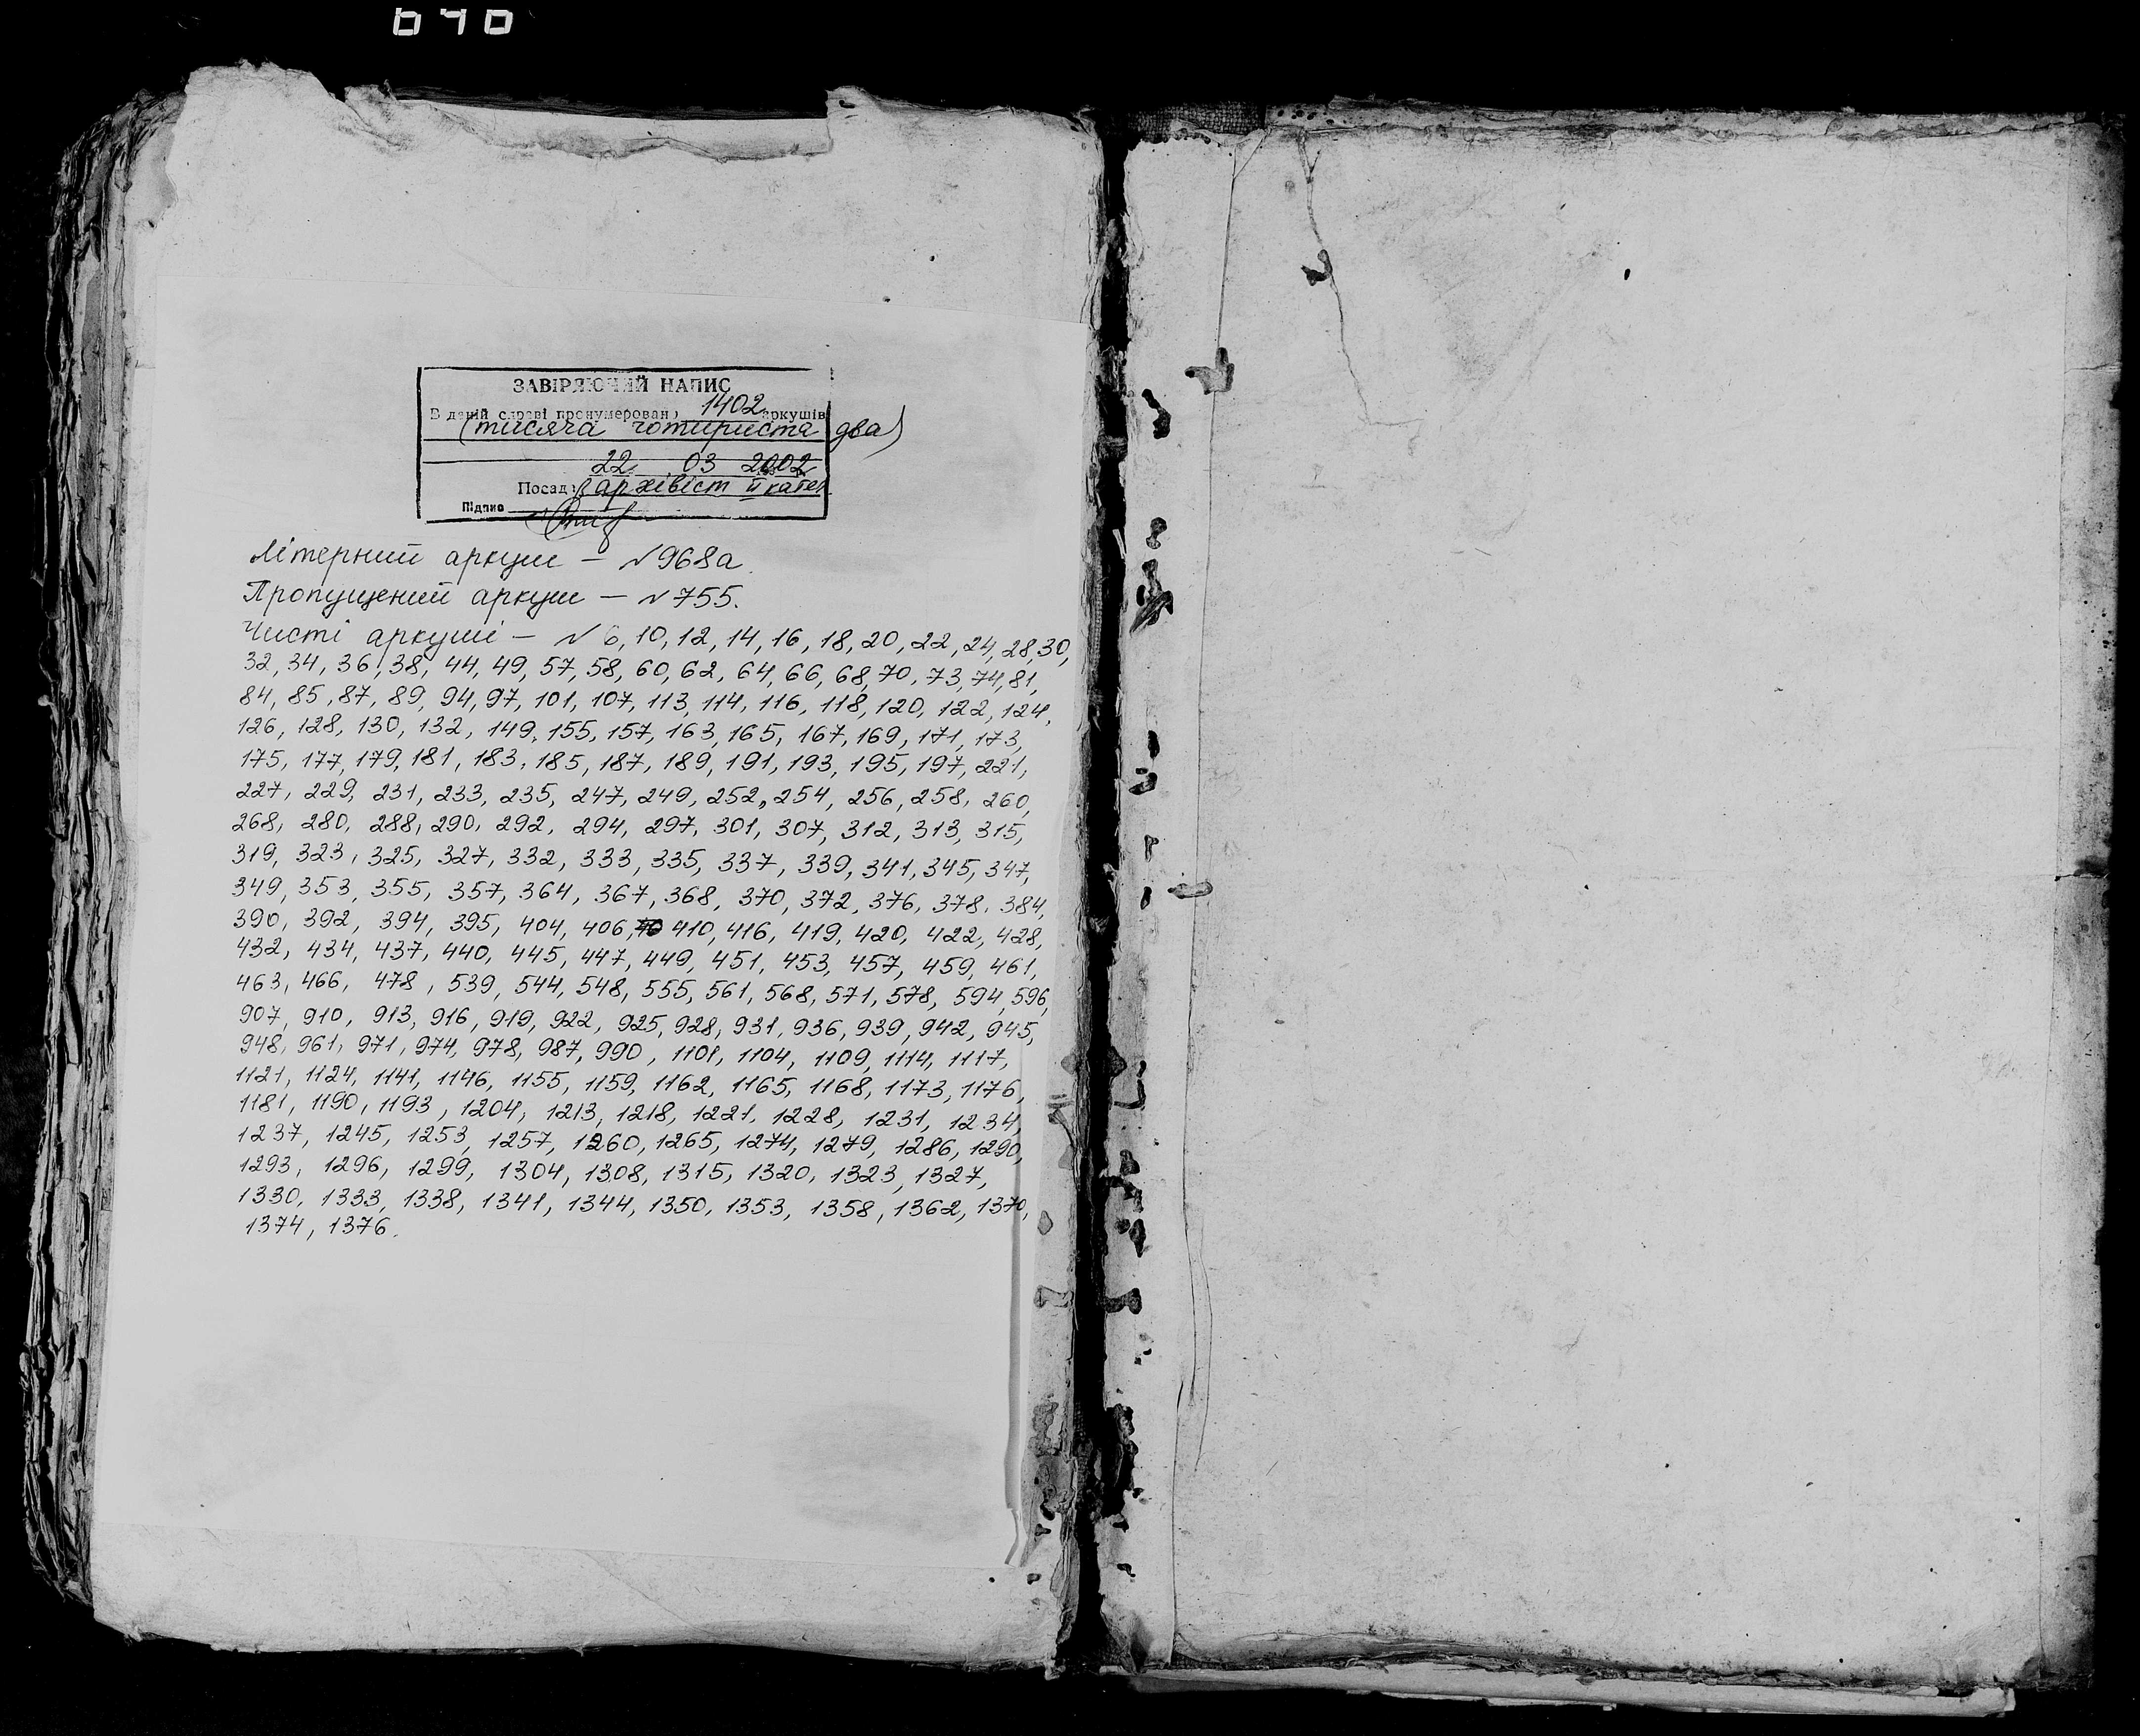 ЗАВІРЯЮЧИЙ НАПИС
В даній справі пронумеровано 1402 аркушів
(тисяча чотириста два)
22 03 2002
Посада архівіст ІІ катег.
Підпис
Літерний аркуш – №968а.
Пропущений аркуш – №755.
Чисті аркуші – № 6, 10, 12, 14, 16, 18, 20, 22, 24, 28, 30,
32, 34, 36, 38, 44, 49, 57, 58, 60, 62, 64, 66, 68, 70, 73, 74, 81,
84, 85, 87, 89, 94, 97, 101, 107, 113, 114, 116, 118, 120, 122, 124,
126, 128, 130, 132, 149, 155, 157, 163, 165, 167, 169, 171, 173,
175, 177, 179, 181, 183, 185, 187, 189, 191, 193, 195, 197, 221,
227, 229, 231, 233, 235, 247, 249, 252, 254, 256, 258, 260,
268, 280, 288, 290, 292, 294, 297, 301, 307, 312, 313, 315,
319, 323, 325, 327, 332, 333, 335, 337, 339, 341, 345, 347,
349, 353, 355, 357, 364, 367, 368, 370, 372, 376, 378, 384,
390, 392, 394, 395, 404, 406, 410, 416, 419, 420, 422, 428,
432, 434, 437, 440, 445, 447, 449, 451, 453, 457, 459, 461,
463, 466, 478, 539, 544, 548, 555, 561, 568, 571, 578, 594, 596,
907, 910, 913, 916, 919, 922, 925, 928, 931, 936, 939, 942, 945,
948, 961, 971, 974, 978, 987, 990, 1101, 1104, 1109, 1114, 1117,
1121, 1124, 1141, 1146, 1155, 1159, 1162, 1165, 1168, 1173, 1176,
1181, 1190, 1193, 1204, 1213, 1218, 1221, 1228, 1231, 1234,
1237, 1245, 1253, 1257, 1260, 1265, 1274, 1279, 1286, 1290,
1293, 1296, 1299, 1304, 1308, 1315, 1320, 1323, 1327,
1330, 1333, 1338, 1341, 1344, 1350, 1353, 1358, 1362, 1370,
1374, 1376.